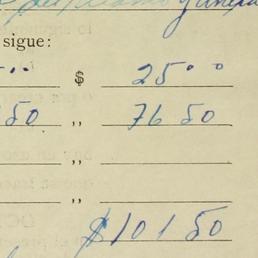 sigue:
$ 25 00
50 ,, 76 50
,,
,,
$101 50